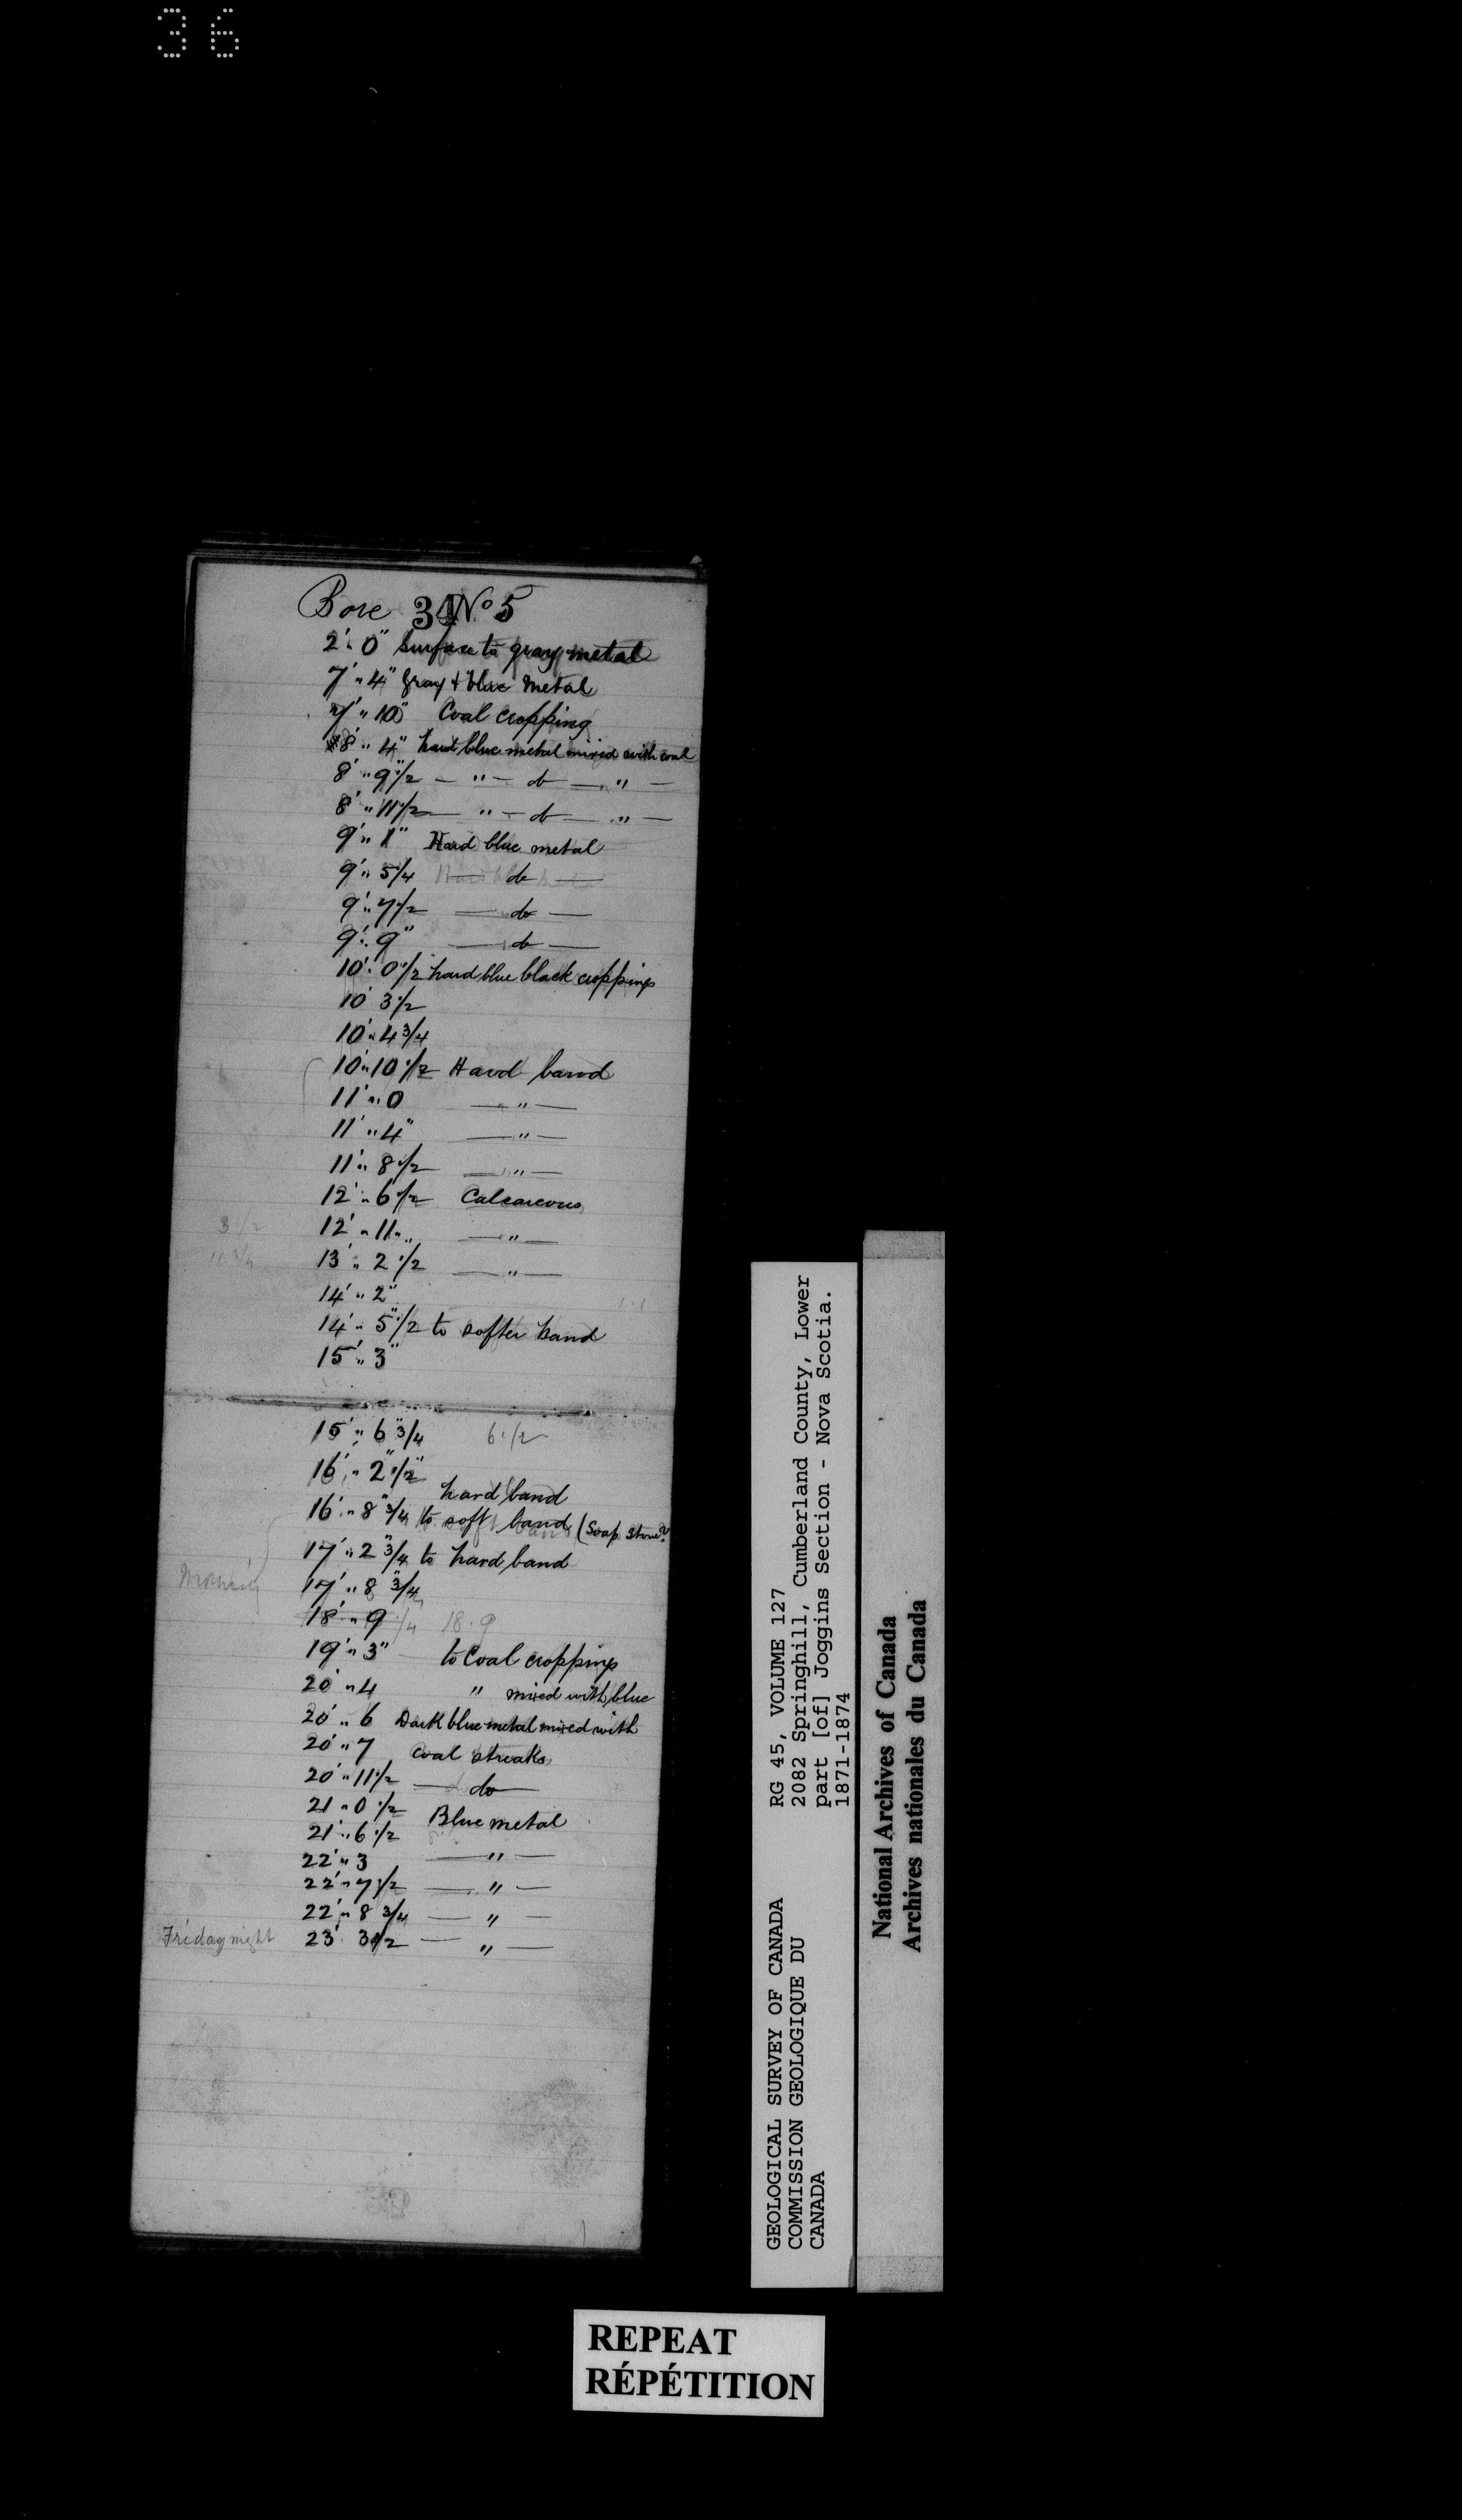 36
Bore 34 No 5
2' " 0" Surface to gray metal
7' " 4" Gray + blue metal
7' " 10" Coal cropping
8' " 4" hard blue metal mixed with coal
8' " 9" 1/2 — " — do — " —
8' " 11 1/2 — " — do — " —
9' " 1" Hard blue metal
9' " 5 1/4 — do —
9' " 7 1/2 — do —
9' " 9" — do —
10' " 0 1/2 hard blue black croppings
10' 3 1/2
10' " 4 3/4
10' " 10 1/2 Hard band
11' " 0 — " —
11' " 4" — " —
11' " 8 1/2 — " —
12' " 6 1/2 Calcareous
3 1/2 12' " 11 " — " —
11 3/4 13' " 2 1/2 — " —
14' " 2"
14' " 5" 1/2 to softer band
15' " 3"
15' " 6" 3/4 6 1/2
16' " 2" 1/2"
hard band
16' " 8" 3/4 to soft band (Soap Stone?
17' " 2" 3/4 to hard band
Morning 17' " 8" 3/4
18' " 9 1/4 18.9
19' " 3" to Coal croppings
20' " 4 " mixed with blue
20' " 6 Dark blue metal mixed with
20' " 7 coal streaks
20' " 11 1/2 — do —
21 " 0 1/2 Blue metal
21' " 6 1/2
22' " 3 — " —
22' " 7 1/2 — " —
22' " 8 3/4 — " —
Friday night 23' 3 1/2 — " —
GEOLOGICAL SURVEY OF CANADA
COMMISSION GEOLOGIQUE DU
CANADA
RG 45, VOLUME 127
2082 Springhill, Cumberland County, Lower
part [of] Joggins Section - Nova Scotia.
1871-1874
National Archives of Canada
Archives nationales du Canada
REPEAT
RÉPÉTITION